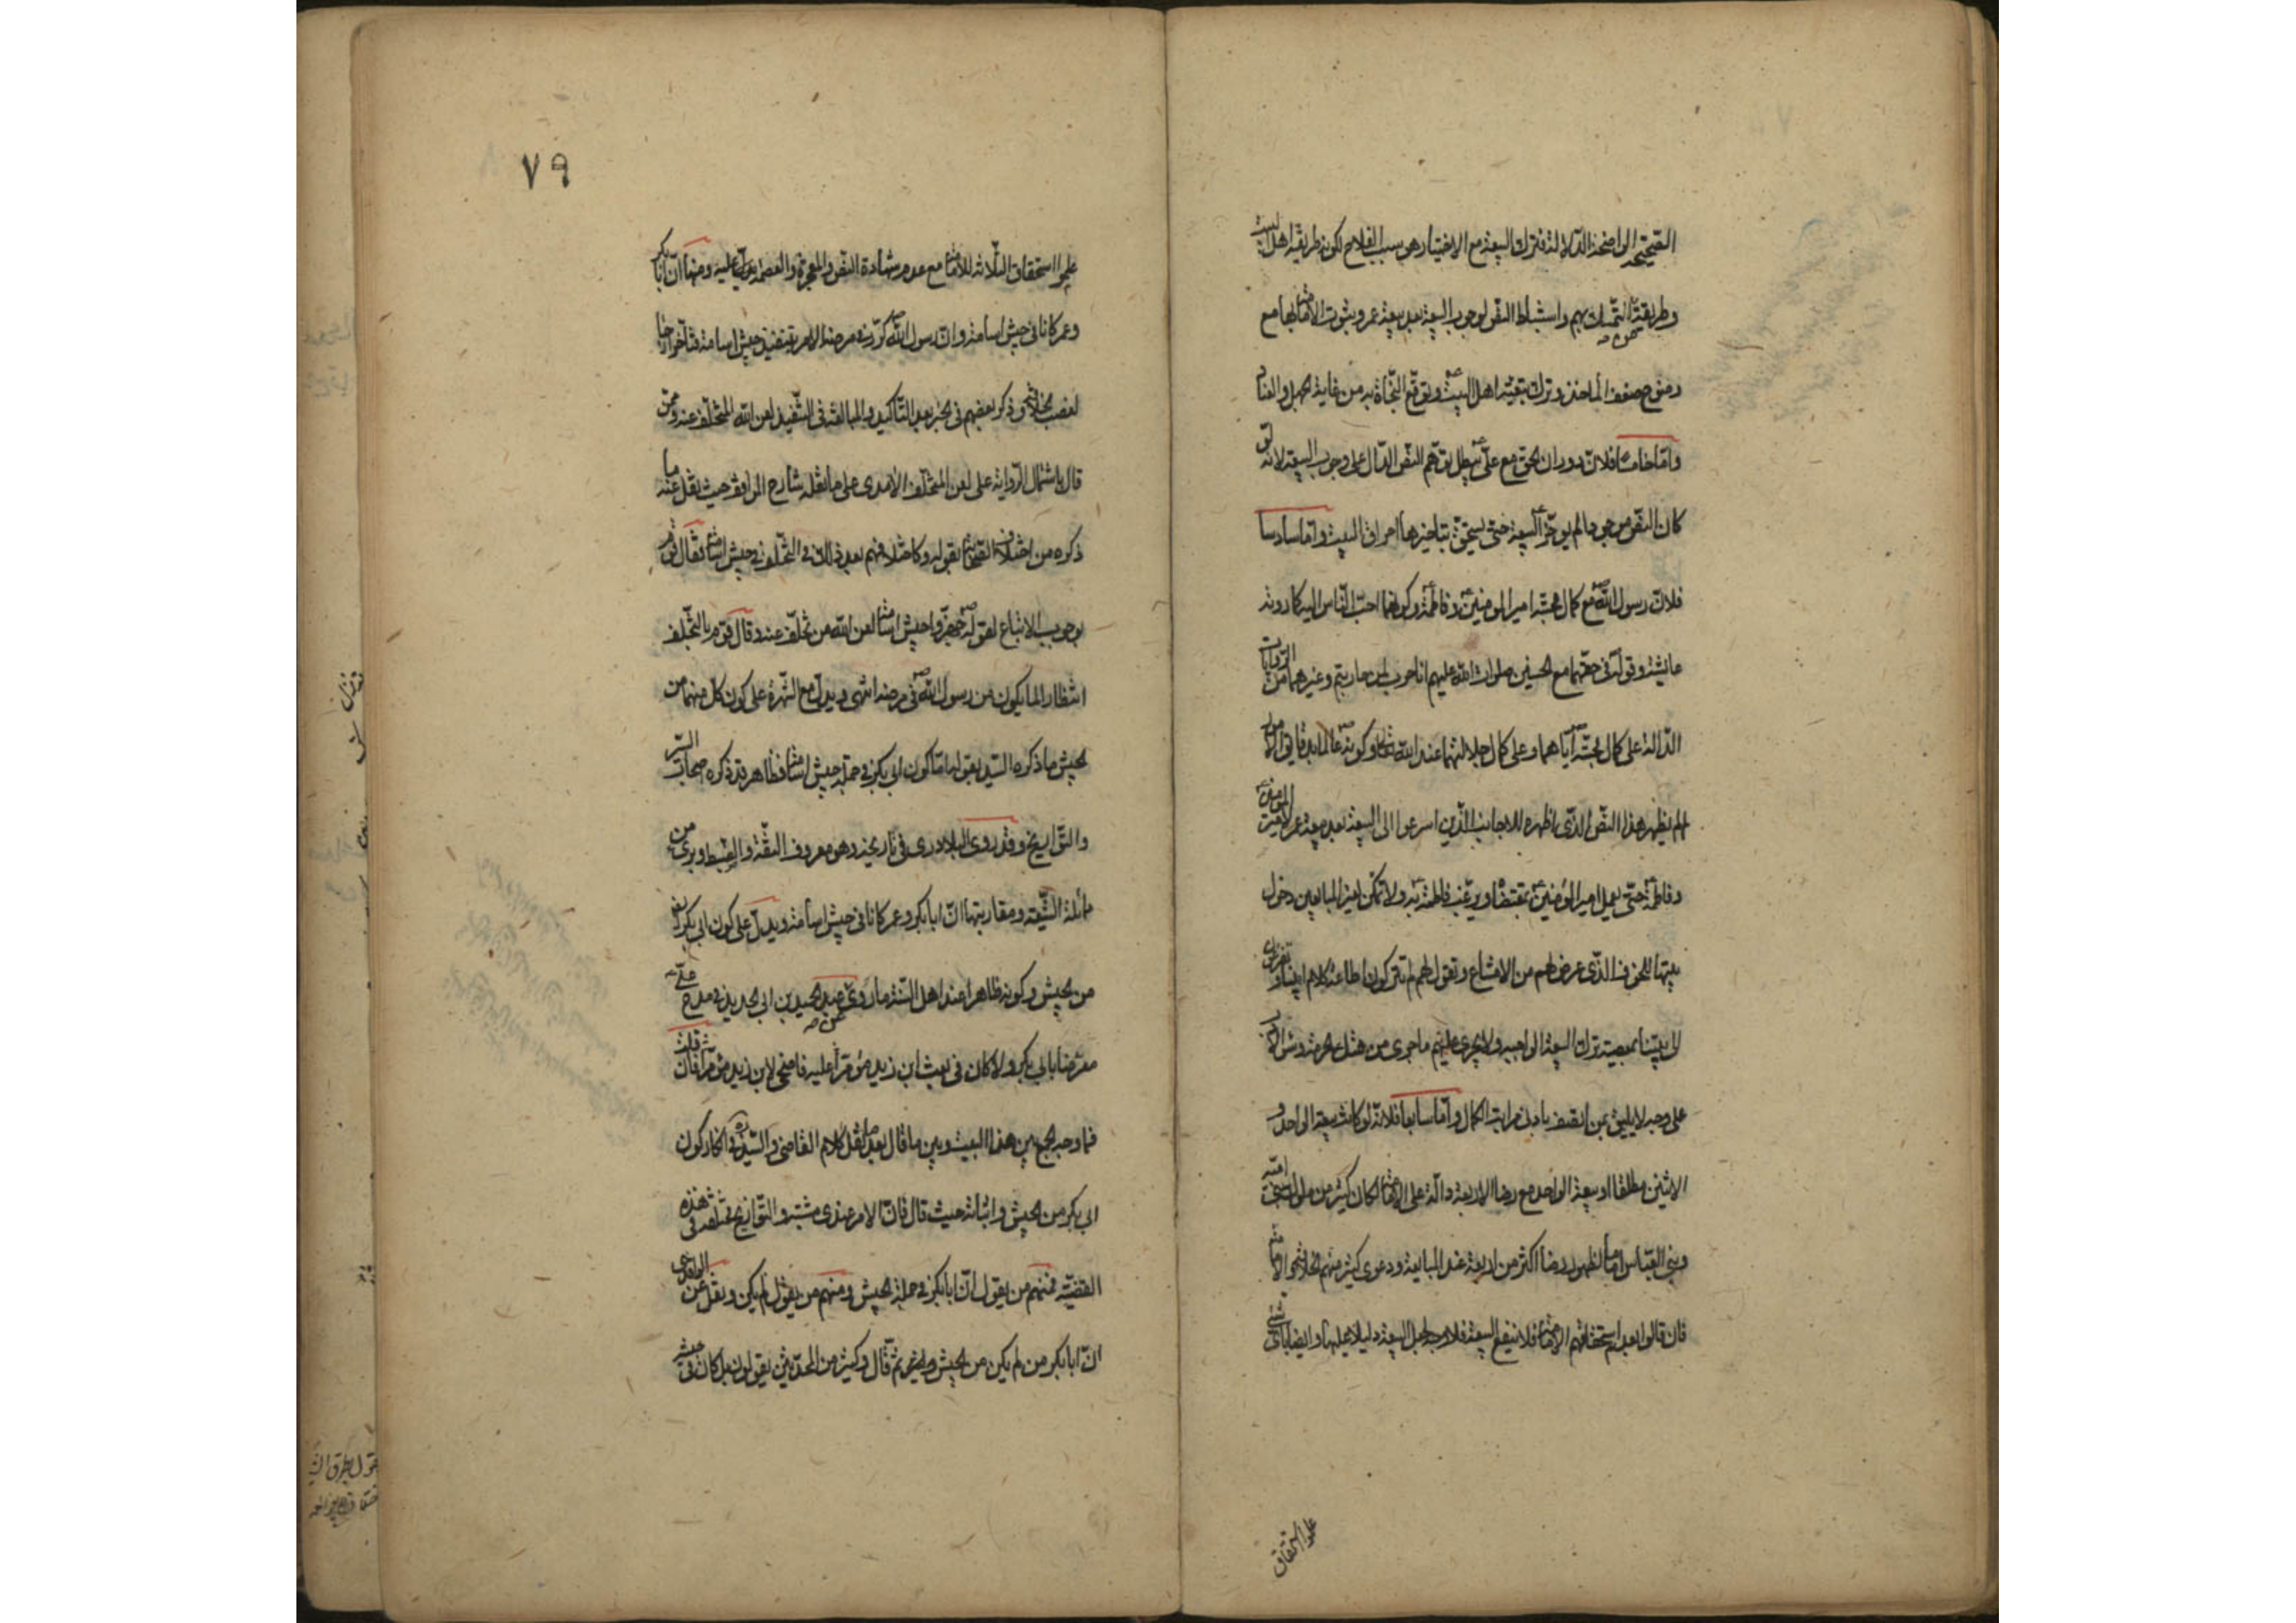 الصحيحة الواضحة الدلالة فترك البيعة مع الاختيار هو سبب الفلاح لكونه طريقة اهل البيت
وطريقة المتمسك بهم واستنباط النص لوجوب البيعة بعد بيعة عمر وثبوت الامامة بها مع
وضوح ضعف المأخذ وترك تبعية اهل البيت وتوقع النجاة به من غاية الجهل والعناد
واما خامسا فلان دوران الحق مع علي يبطل توهم النص الدال على وجوب البيعة لانه لو
كان النص موجودا لم يؤخر البيعة حتى يستحق بتأخيرها احراق البيت واما سادسا
فلان رسول الله مع كمال محبة امير المؤمنين وفاطمة وكونهما احب الناس اليه كما روته
عايشة وقوله في حقهما مع الحسنين صلوات الله عليهم انا حرب لمن حاربتم وغيرهما من الروايات
الدالة على كمال محبته اياهما وعلى كمال جلالتهما عند الله تعالى وكونه عالما بدقايق الامور
لم لم يظهر هذا النص الذي اظهره للاجانب الذين اسرعوا الى البيعة بعد بيعة عمر لامير المؤمنين
وفاطمة حتى يعمل امير المؤمنين بمقتضاه ويرغب فاطمة به ولا تمكن لغير المبايعين دخول
بيتها للخوف الذي عرض لهم من الامتناع وتقول لهم لم تتركون اطاعة كلام ابينا وتعزون
لا بيتنا بمعصية ترك البيعة الواجبه ولا يجري عليهم ما جرى من هتك الحرمة وشر الاشرار
على وجه لا يليق بمن اتصف بادنى مراتب الكمال واما سابعا فلانه لو كانت بيعة الواحد و
الاثنين مطلقا او بيعة الواحد مع رضا الاربعة دالة على الامامة لكان كثير من ملوك بني امية
وبني العباس اماما لظهور رضا اكثر من اربعة عند المبايعة ودعوى كثير منهم الخلافة والامامة
فان قالوا بعدم استحقاقهم الامامة فلا تنفع البيعة فلا وجه لجعل البيعة دليلا عليها وايضا باي شئ
علموا استحقاق
٧٩
علموا استحقاق الثلاثة للامامة مع عدم شهادة النص والمعجزة والعصمة يدل عليه ومنها ان ابا بكر
وعمر كانا في جيش اسامة وان رسول الله كرر في مرضه الامر بتنفيذ جيش اسامة فتأخرا
لغصب الخلافة وذكر بعضهم في الخبر بعد التأكيد والمبالغة في التنفيذ لعن الله المتخلف عنه وممن
قال باشتمال الرواية على لعن المتخلف الآمدي على ما نقله شارح المواقف حيث نقل عنه ما
ذكره من اختلاف الصحابة بقوله وكاختلافهم بعد ذلك في التخلف في جيش اسامة فقال قوم
بوجوب الاتباع لقوله جهزوا جيش اسامة لعن الله من تخلف عنه وقال قوم بالتخلف
انتظارا لما يكون من رسول الله في مرضه انتهى ويدل مع الشهرة على كون كل منهما من
الجيش ما ذكره السيد بقوله اما كون ابي بكر في جملة جيش اسامة فظاهر قد ذكره اصحاب السير
والتواريخ وقد روى البلاذري في تاريخه وهو معروف الثقة والضبط وبري من
مائلة الشيعة ومقاربتها ان ابا بكر وعمر كانا في جيش اسامة ويدل على كون ابي بكر
من الجيش وكونه ظاهرا عند اهل السنة ما روى عبد الحميد بن ابي الحديد في مدح علي
معرضا بابي بكر ولا كان في بعث ابن زيد مؤمرا عليه فاضحى لابن زيد مؤمرا فان قلت
فما وجه الجمع بين هذا البيت وبين ما قال بعد نقل كلام القاضي والسيد في انكار كون
ابي بكر من الجيش واثباته حيث قال فان الامر عندي مشتبه والتواريخ مختلفة في هذه
القضية فمنهم من يقول ان ابا بكر في جملة الجيش ومنهم من يقول لم يكن ونقل عن الواقدي
ان ابا بكر لم يكن من الجيش ثم قال وكثير من المحدثين يقولون بل كان في جيشه